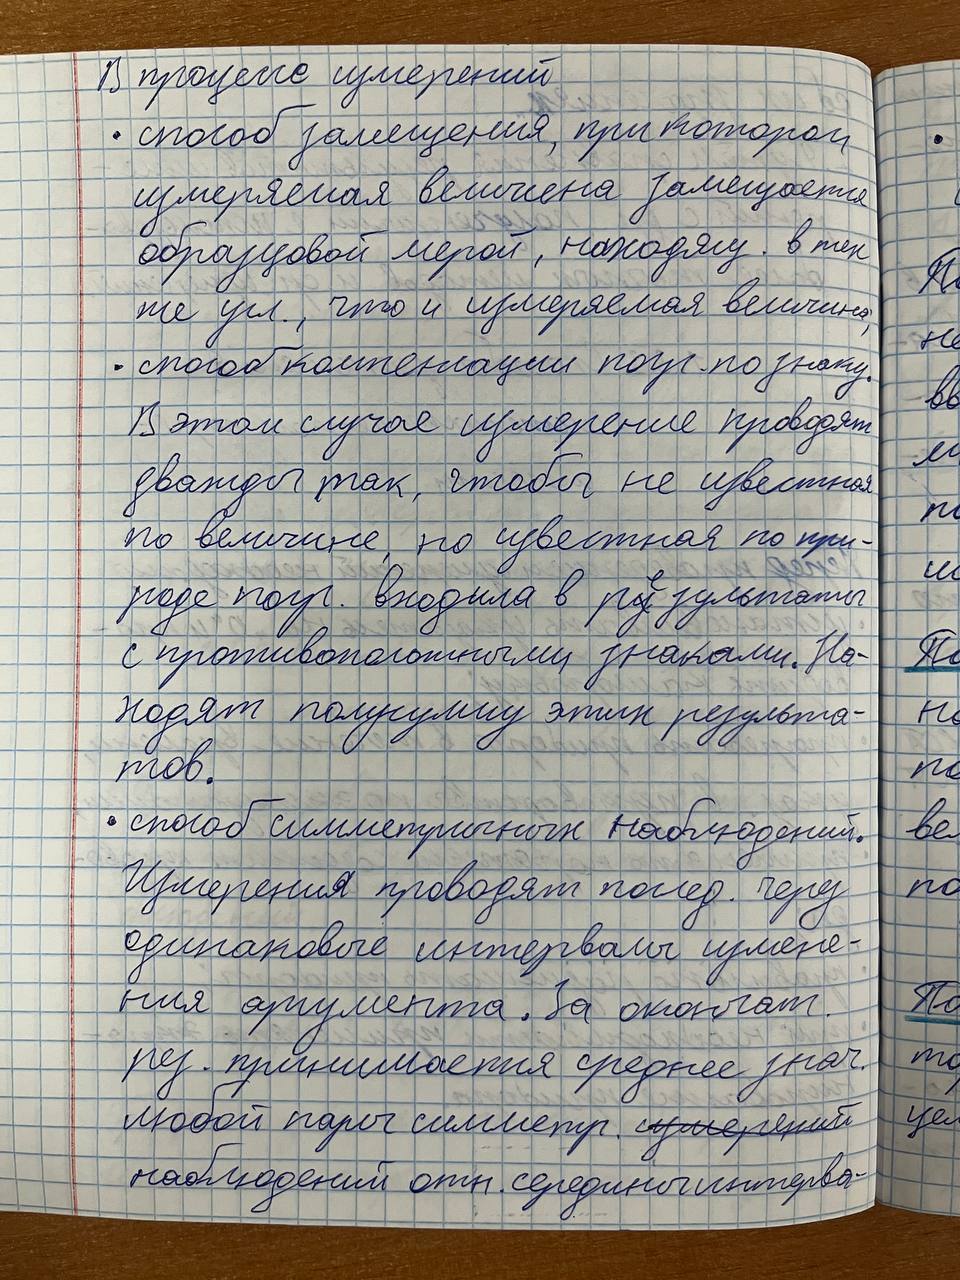 В процессе измерений
• способ замещения, при котором
измеряемая величена замещается
образцовой мерой, находящ. в тех
же усл., что и измеряемая величина;
• способ компенсации погр. по знаку.
В этом случае измерение проводят
дважды так, чтобы не известная
по величине, но известная по при-
роде погр. входила в результаты
с противоположными знаками. На-
ходят полусумму этих результа-
тов.
• способ симметричных наблюдений.
Измерения проводят послед. через
одинаковые интервалы измене-
ния аргумента. За окончат.
рез. принимается среднее знач.
любой пары симметр. измерений
наблюдений отн. середины интерва-
•
По
не
вв
по
По
на
по
вел
по
По
то
цел